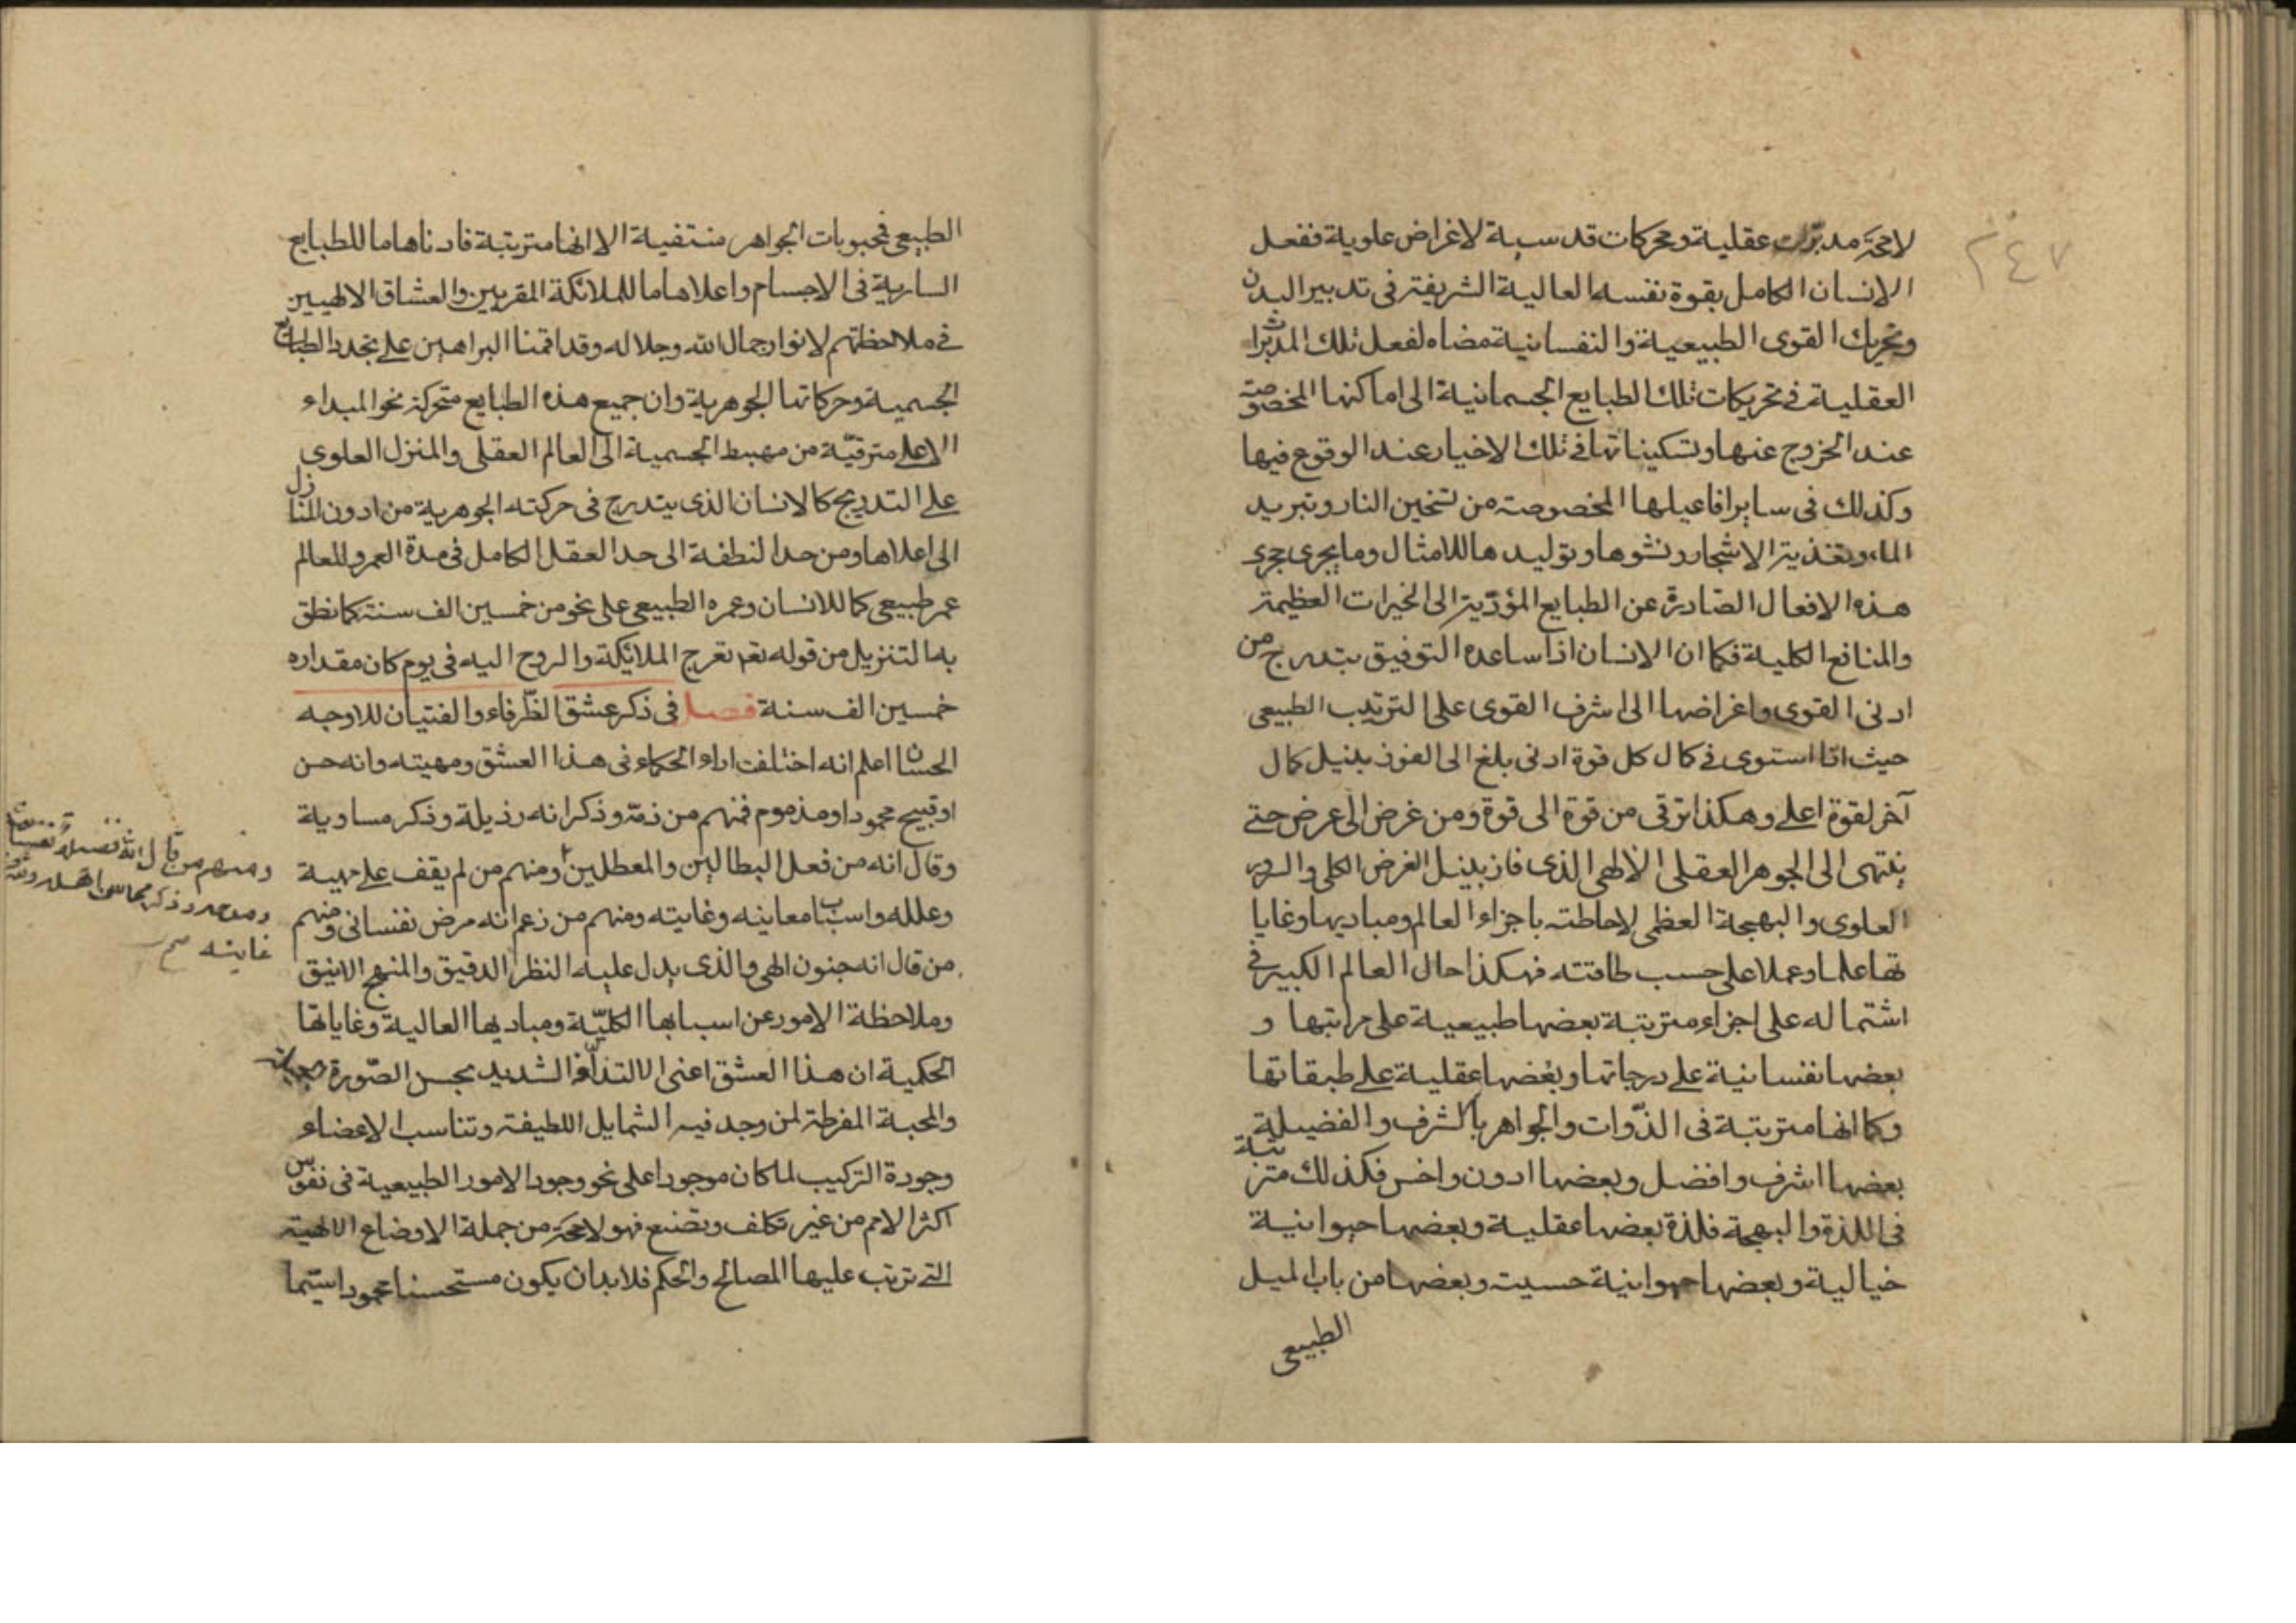 ٢٤٧
لامحة مدبرات عقلية ومحركات قدسية لاغراض علوية ففعل
الانسان الكامل بقوة نفسه العالية الشريفة فى تدبير البدن
وتحريك القوى الطبيعية والنفسانية مضاه لفعل تلك المدبرات
العقلية فى تحريكات تلك الطبايع الجسمانية الى اماكنها المخصوصة
عند الخروج عنها وتسكيناتها فى تلك الاخيار عند الوقوع فيها
وكذلك فى ساير افاعيلها المخصوصة من تسخين النار وتبريد
الماء وتغذية الاشجار ونشوها وتوليدها للامثال وما يجرى مجرى
هذه الافعال الصادرة عن الطبايع المؤدية الى الخيرات العظيمة
والمنافع الكلية فكما ان الانسان اذا ساعده التوفيق يتدرج من
ادنى القوى واغراضها الى اشرف القوى على الترتيب الطبيعى
حيث اذا استوى فى كمال كل قوة ادنى بلغ الى الفوز بنيل كمال
آخر لقوة اعلى وهكذا ترقى من قوة الى قوة ومن غرض الى غرض حتى
ينتهى الى الجوهر العقلى الالهى الذى فاز بنيل الغرض الكلى والسرور
العلوى والبهجة العظمى لاحاطته باجزاء العالم ومباديها وغايا
تها علما وعملا على حسب طاقته فهكذا حال العالم الكبير فى
اشتماله على اجزاء مترتبة بعضها طبيعية على مراتبها و
بعضها نفسانية على درجاتها وبعضها عقلية على طبقاتها
وكما انها مترتبة فى الذوات والجواهر بالشرف والفضيلة
بعضها اشرف وافضل وبعضها ادون واخس فكذلك مترتبة
فى اللذة والبهجة فلذة بعضها عقلية وبعضها حيوانية
خيالية وبعضها حيوانية حسية وبعضها من باب الميل
الطبيعى
الطبيعى فمحبوبات الجواهر منتفية الا انها مترتبة فادناها ما للطبايع
السارية فى الاجسام واعلاها ما للملائكة المقربين والعشاق الالهيين
فى ملاحظتهم لانوار جمال الله وجلاله وقد اقمنا البراهين على تجدد الطبايع
الجسمية وحركاتها الجوهرية وان جميع هذه الطبايع متحركة نحو المبداء
الاعلى مترقية من مهبط الجسمية الى العالم العقلى والمنزل العلوى
على التدريج كالانسان الذى يتدرج فى حركته الجوهرية من ادون المنازل
الى اعلاها ومن حد النطفة الى حد العقل الكامل فى مدة العمر وللعالم
عمر طبيعى كما للانسان وعمره الطبيعى على نحو من خمسين الف سنة كما نطق
به التنزيل من قوله تعم تعرج الملائكة والروح اليه فى يوم كان مقداره
خمسين الف سنة فصل فى ذكر عشق الظرفاء والفتيان للاوجه
الحسان اعلم انه اختلفت اراء الحكماء فى هذا العشق ومهيته وانه حسن
او قبيح محمود او مذموم فمنهم من ذمه وذكر انه رذيلة وذكر مساوية
وقال انه من فعل البطالين والمعطلين ومنهم من لم يقف على مهية
وعلله واسباب معانيه وغايته ومنهم من زعم انه مرض نفسانى ومنهم
من قال انه جنون الهى والذى يدل عليه النظر الدقيق والمنهج الانيق
وملاحظة الامور عن اسبابها الكلية ومباديها العالية وغاياتها
الحكمية ان هذا العشق اعنى الالتذاذ الشديد بحسن الصورة
والمحبة المفرطة لمن وجد فيه الشمايل اللطيفة وتناسب الاعضاء
وجودة التركيب لما كان موجودا على نحو وجود الامور الطبيعية فى نفوس
اكثر الامم من غير تكلف وتصنع فهو لامحة من جملة الاوضاع الالهية
التى يترتب عليها المصالح والحكم فلابد ان يكون مستحسنا محمودا سيما
ومنهم من قال انه فضيلة نفسانية
ومدحه وذكر محاسن اهله
غايته صح